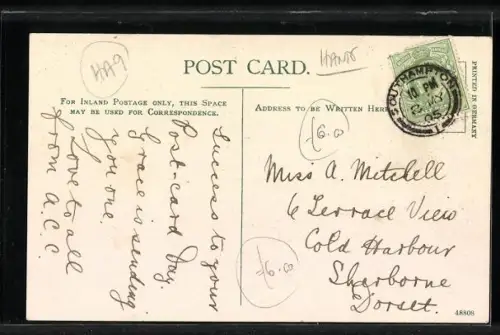 HA9
HANTS
POST CARD.
FOR INLAND POSTAGE ONLY, THIS SPACE
MAY BE USED FOR CORRESPONDENCE.
ADDRESS TO BE WRITTEN HERE
PRINTED IN GERMANY
SOUTHAMPTON
10 PM
MY
05
1
£6.00
Success to your
Post-card Day.
Grace is sending
you one.
Love to all
from A.C.C.
£6.00
Miss A. Mitchell
6 Terrace View
Cold Harbour
Sherborne
Dorset.
48808